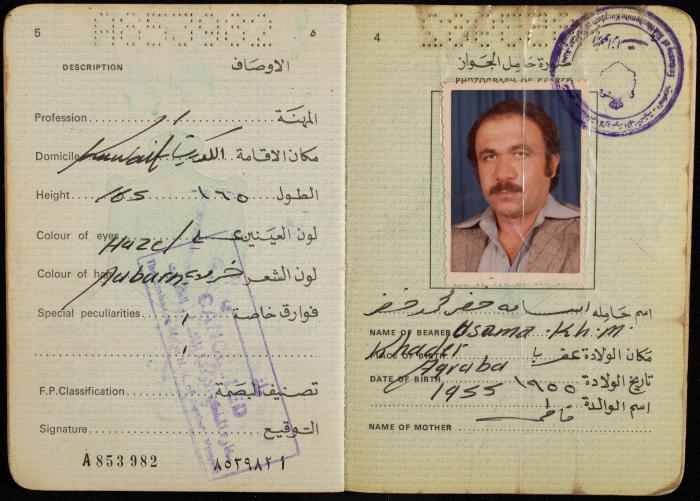 5
٥
DESCRIPTION
الاوصاف
Profession
المهنة
Domicile Kuwait
الكويت مكان الاقامة
Height 165
١٦٥ الطول
Colour of eyes Hazel
عسلي لون العينين
Colour of hair Auburn
خروبي لون الشعر
Special peculiarities
فوارق خاصة
F.P.Classification
تصنيف البصمة
Signature
التوقيع
A 853982
CANCELLED
4
صورة حامل الجواز
PHOTOGRAPH OF BEARER
اسم حامله اسامه خضر محمد خضر
NAME OF BEARER Usama Kh. M.
Khader
مكان الولادة عقربا
PLACE OF BIRTH Aqraba
تاريخ الولادة ١٩٥٥
DATE OF BIRTH 1955
اسم الوالدة
NAME OF MOTHER